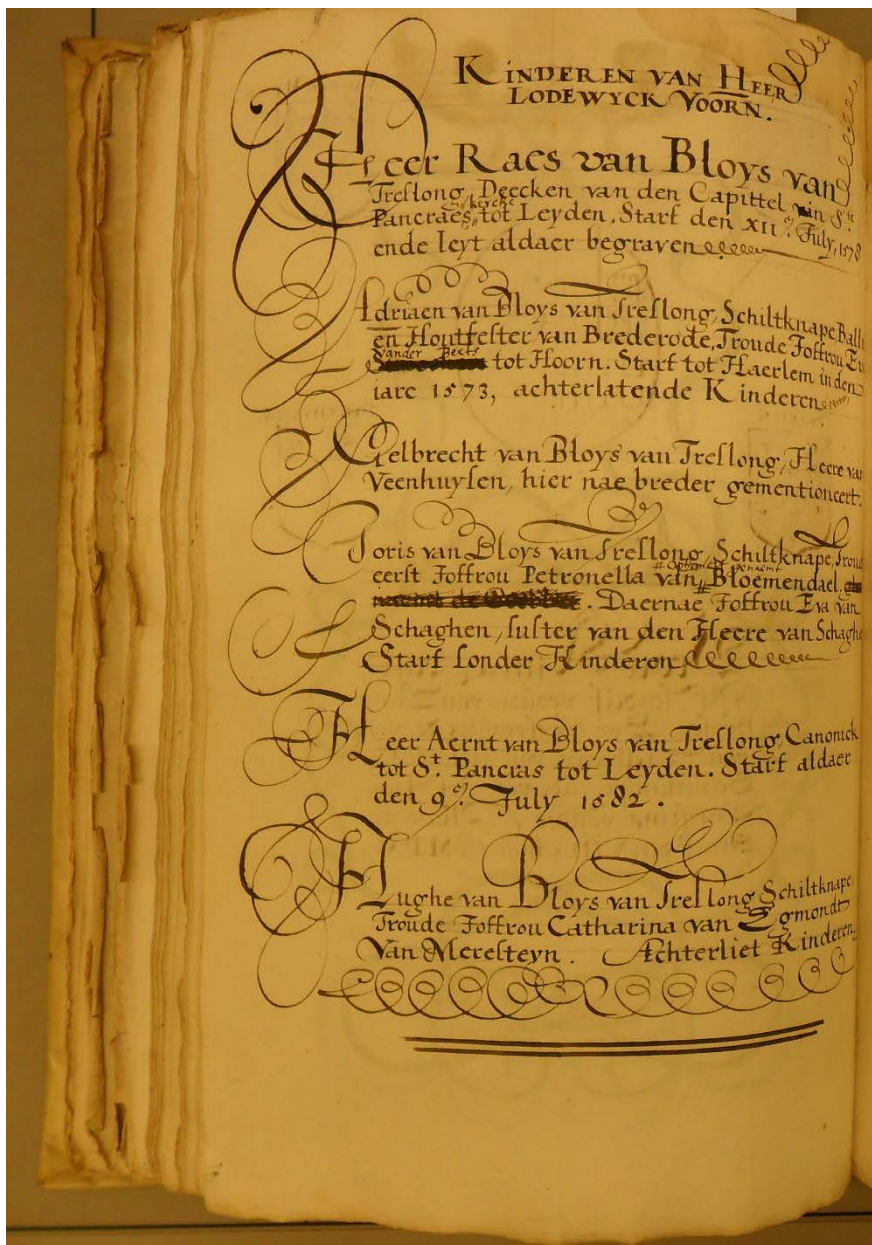 KINDEREN VAN HEER
LODEWYCK VOORN.
Heer Raes van Bloys van
Treslong, Deecken van den Capittel van Ste
kercke
Pancraes tot Leyden. Starf den XII July, 1578
ende leyt aldaer begraven
Adriaen van Bloys van Treslong, Schiltknape, Balliu
en Houtfester van Brederode, Troude Joffrou
vander Beets
tot Hoorn. Starf tot Haerlem in den
iare 1573, achterlatende Kinderen
Gielbrecht van Bloys van Treslong, Heere van
Veenhuysen, hier nae breder gementioneert.
Joris van Bloys van Treslong, Schiltknape, Troude
genaemt
eerst Joffrou Petronella van Bloemendael,
. Daernae Joffrou Eva van
Schaghen, suster van den Heere van Schaghe
Starf sonder Kinderen
Heer Aernt van Bloys van Treslong, Canonick
tot St. Pancras tot Leyden. Starf aldaer
den 9 July 1582.
Hughe van Bloys van Treslong Schiltknape,
Troude Joffrou Catharina van Egmondt
Van Meresteyn. Achterliet Kinderen